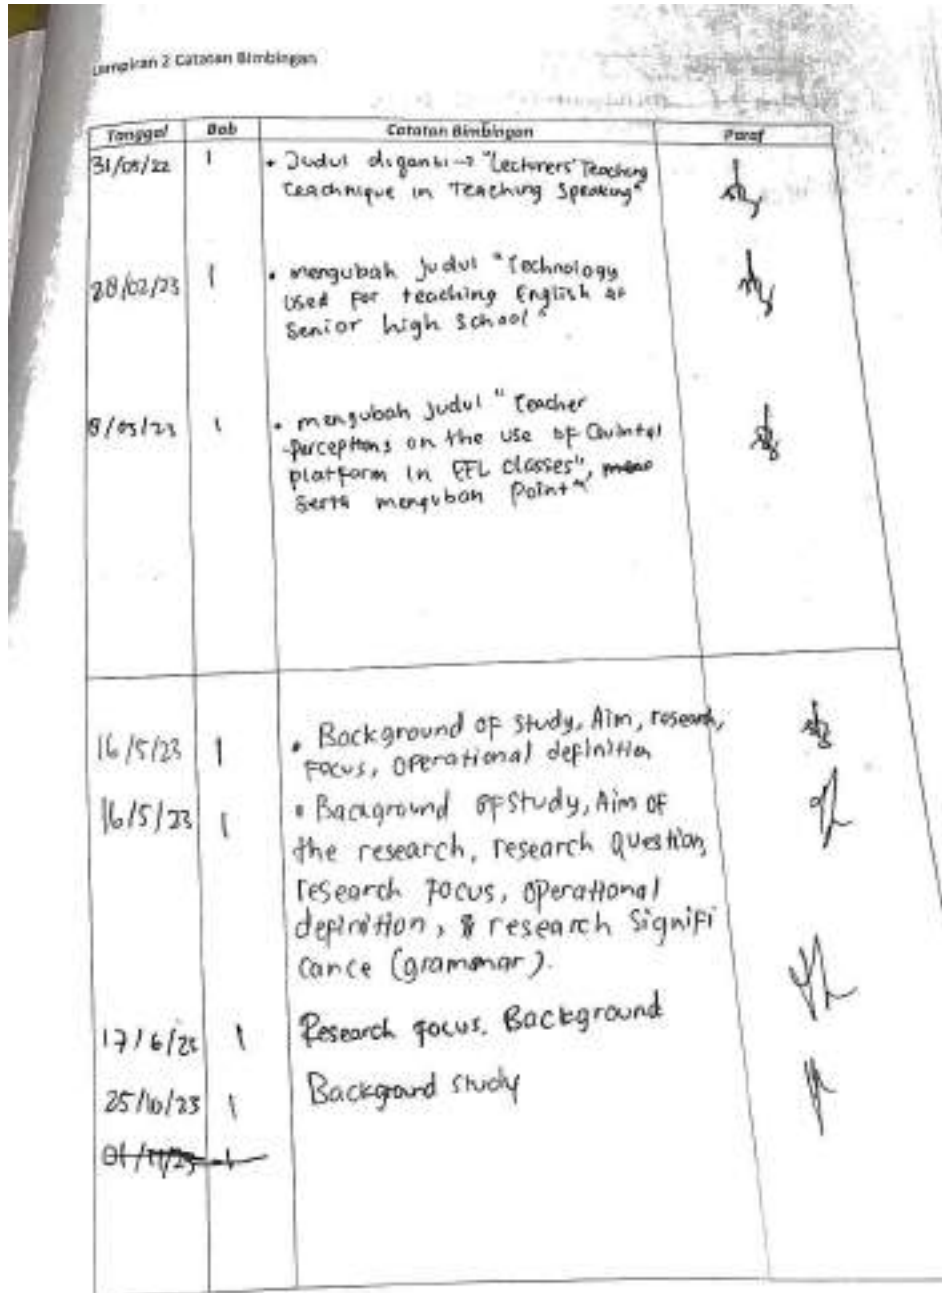 Lampiran 2 Catatan Bimbingan
Tanggal Bab Catatan Bimbingan Paraf
31/05/22 1 • Judul diganti → "Lecturers' Teaching
teachnique in Teaching Speaking"
28/02/23 1 • mengubah judul "Technology
Used for teaching English at
Senior high School"
8/03/23 1 • mengubah judul "Teacher
perceptions on the use of
platform in EFL classes",
serta mengubah Point"
16/5/23 1 • Background of study, Aim, research,
Focus, operational definition
16/5/23 1 • Background of Study, Aim of
the research, research Question,
research Focus, operational
definition, & research Signifi
cance (grammar).
17/6/23 1 Research focus. Background
25/10/23 1 Background study
01/11/23 1